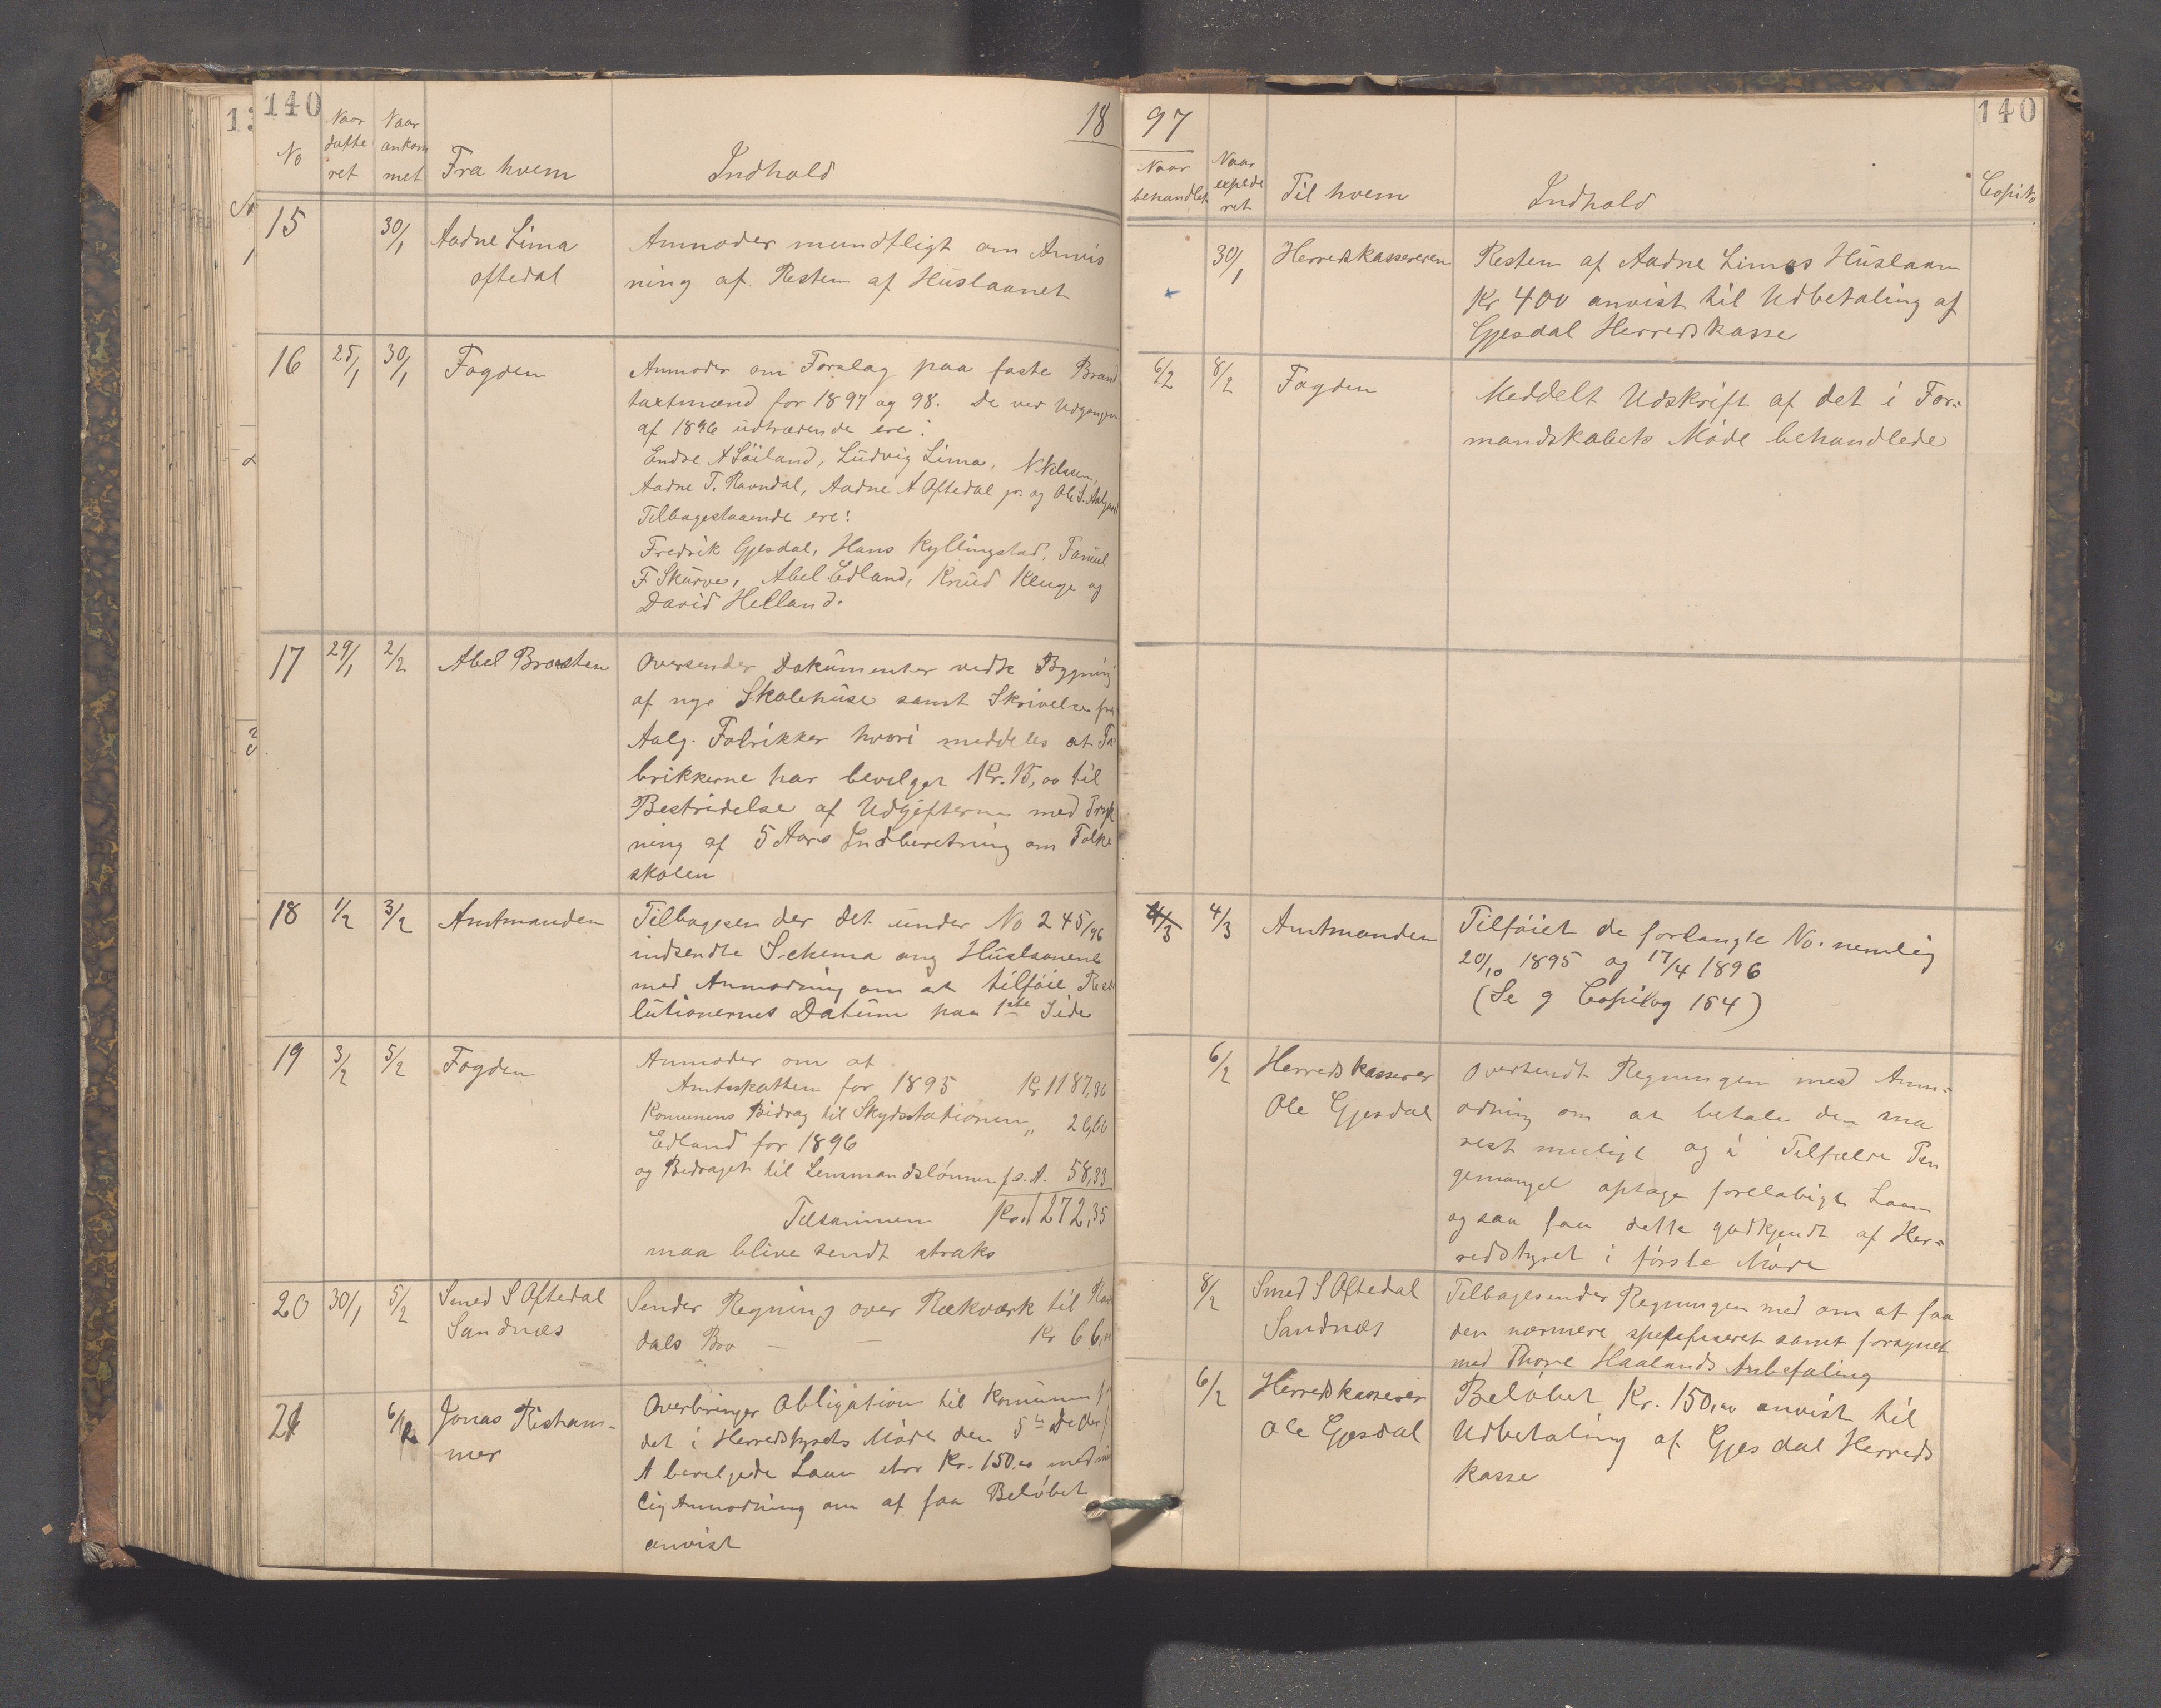 140
18
No
Naar datte ret
Naar ankom met
Fra hvem
Indhold
15 30/1 Aadne Lima
Oftedal
Anmoder mundtligt om Anvis
ning af Resten af Huslaanet
16 25/1 30/1 Fogden
Anmoder om Forslag paa faste Brand
taxtmænd for 1897 og 98. De ved Udgangen
af 1896 udtrædende ere:
Endre A Söiland, Ludvig Lima, N Nilsen,
Aadne T. Ravndal, Aadne A Oftedal jr. og Ole S. Aalgaard
Tilbagestaaende ere:
Fredrik Gjesdal, Hans Kyllingstad,
F Skurve, Abel Edland, Knud Kluge og
David Helland.
17 29/1 2/2 Abel Brodsten
Oversender Dokumenter vedk Bygning
af nye Skolehuse samt Skrivelse fra
Aalg. Fabrikker hvori meddeles at Fa
brikkerne har bevilget Kr. 15,00 til
Bestridelse af Udgifterne med Tryk
ning af 5 Aars Indberetning om Folke
skolen
18 1/2 3/2 Amtmanden
Tilbagesender det under No 245/96
indsendte Schema ang Huslaanene
med Anmodning om at tilföie Reso
lutionernes Datum paa 1ste Side
19 3/2 5/2 Fogden
Anmoder om at
Amtsskatten for 1895 Kr 1187,36
Komunens Bidrag til Skydsstationen
Edland for 1896 " 26,66
og Bidraget til Lensmandslönnen f.s.A. 58,33
Tilsammen Kr. 1272,35
maa blive sendt straks
20 30/1 5/2 Smed S Oftedal
Sandnæs
Sender Regning over Rækværk til
dals Bro — Kr 66,
21 6/2 Jonas Risham-
mer
Overbringer Obligation til Komunen
det i Herredstyrets Möde den 5te
A bevilgede Laan stor Kr. 150,00 med
lig Anmodning om at faa Belöbet
anvist
97
140
Naar behandlet
Naar expede ret
Til hvem
Indhold
Copi No
30/1 Herredskassereren
Resten af Aadne Limas Huslaan
Kr 400 anvist til Udbetaling af
Gjesdal Herredskasse
6/2 8/2 Fogden
Meddelt Udskrift af det i For=
mandskabets Möde behandlede
4/3 4/3 Amtmanden
Tilföiet de forlangte No. nemlig
20/10 1895 og 17/4 1896
(Se g Copibog 154)
6/2 Herredskasserer
Ole Gjesdal
Oversendt Regningen med Anm=
odning om at betale den sna
rest muligt og i Tilfælde Pen
gemangel optage forelöbigt Laan
og saa faa dette godkjendt af Her=
redstyret i förste Möde
8/2 Smed S Oftedal
Sandnæs
Tilbagesender Regningen med om at faa
den nærmere spesifiseret samt forsynet
med Thore Haalands Anbefaling
6/2 Herredskasserer
Ole Gjesdal
Belöbet Kr. 150,00 anvist til
Udbetaling af Gjesdal Herreds
kasse